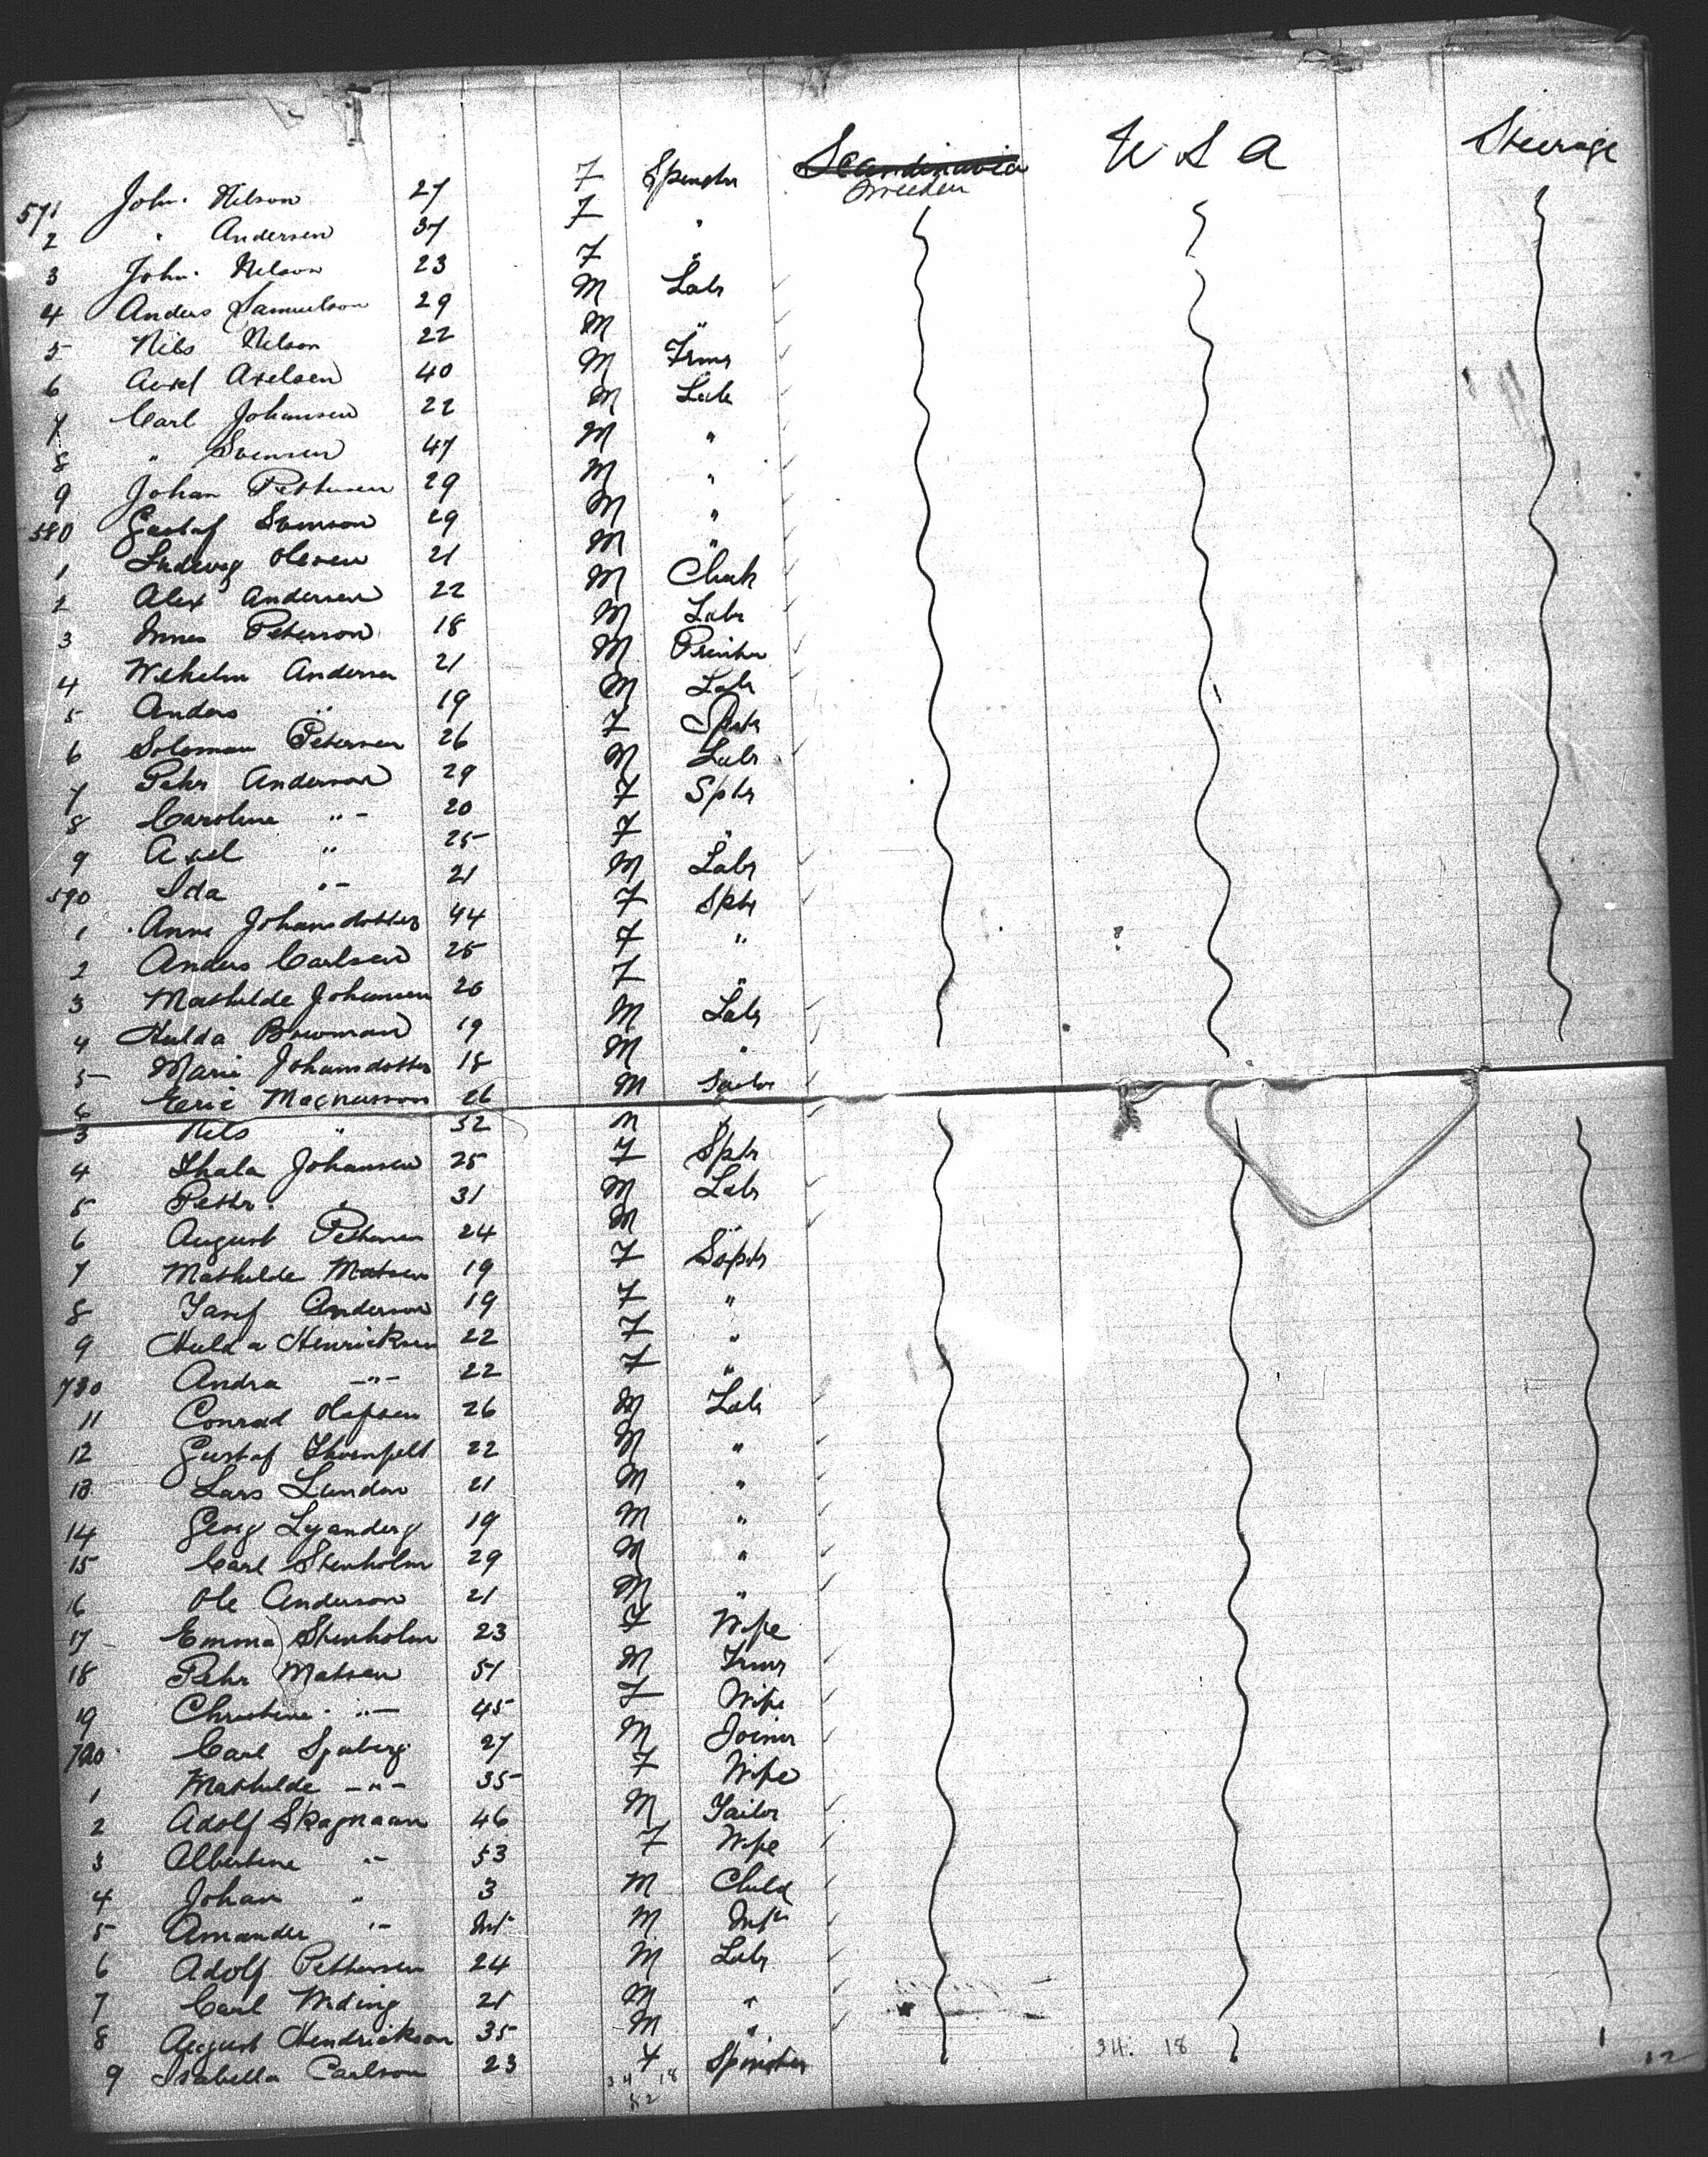 Scandinavia U S A Steerage
571 John. Nilson 27 F Spinstr Sweden
2 " Andersen 37 F "
3 John. Nelson 23 F "
4 Anders Samuelson 29 M Labr
5 Nils Nelson 22 M "
6 Axel Axelsen 40 M Frmr
7 Carl Johansen 22 M Lab
8 " Svensen 47 M "
9 Johan Pettersen 29 M "
580 Gustaf Svenson 29 M "
1 Ludwig Olesen 21 M "
2 Alex Andersen 22 M Clerk
3 Peterson 18 M Labr
4 Wilhelm Andersen 21 M Printer
5 Anders " 19 M Labr
6 Soloman Petersen 26 F Spstr
7 Pehr Anderson 29 M Labr
8 Caroline " - 20 F Sptr
9 Axel " 25 F "
590 Ida " - 21 M Labr
1 Anna Johansdotter 44 F Sptr
2 Anders Carlsen 25 F "
3 Mathilde Johansen 20 F "
4 Hulda Bowman 19 M Labr
5 Marie Johansdotter 18 M "
6 Eric Magnusson 26 M Sailor
3 Nils " 32 M "
4 Thala Johansen 25 F Sptr
5 Pettr. " 31 M Labr
6 August Petersen 24 M "
7 Mathilde Matsen 19 F Sptr
8 Josef Anderson 19 F "
9 Hulda Henricksen 22 F "
Andra - " - 22 F "
11 Conrad Olafsen 26 M Labr
12 Gustaf Thornfelt 22 M "
13 Lars Lunden 21 M "
14 Georg 19 M "
15 Carl Stenholm 29 M "
16 Ole Anderson 21 M "
17 Emma Stenholm 23 F Wife
18 Pehr Matsen 51 M Frmr
19 Christine " - 45 F Wife
720 Carl Sjoberg 27 M Joiner
1 Mathilde - " - 35 F Wife
2 Adolf 46 M Tailor
3 Albertine " - 53 F Wife
4 Johan " 3 M Child
5 Amander " - Inft M Inft
6 Adolf Pettersen 24 M Labr
7 Carl Widing 21 M "
8 August Hendrickson 35 M " 34. 18
9 Isabella Carlson 23 F Spinster 12
34 18
52